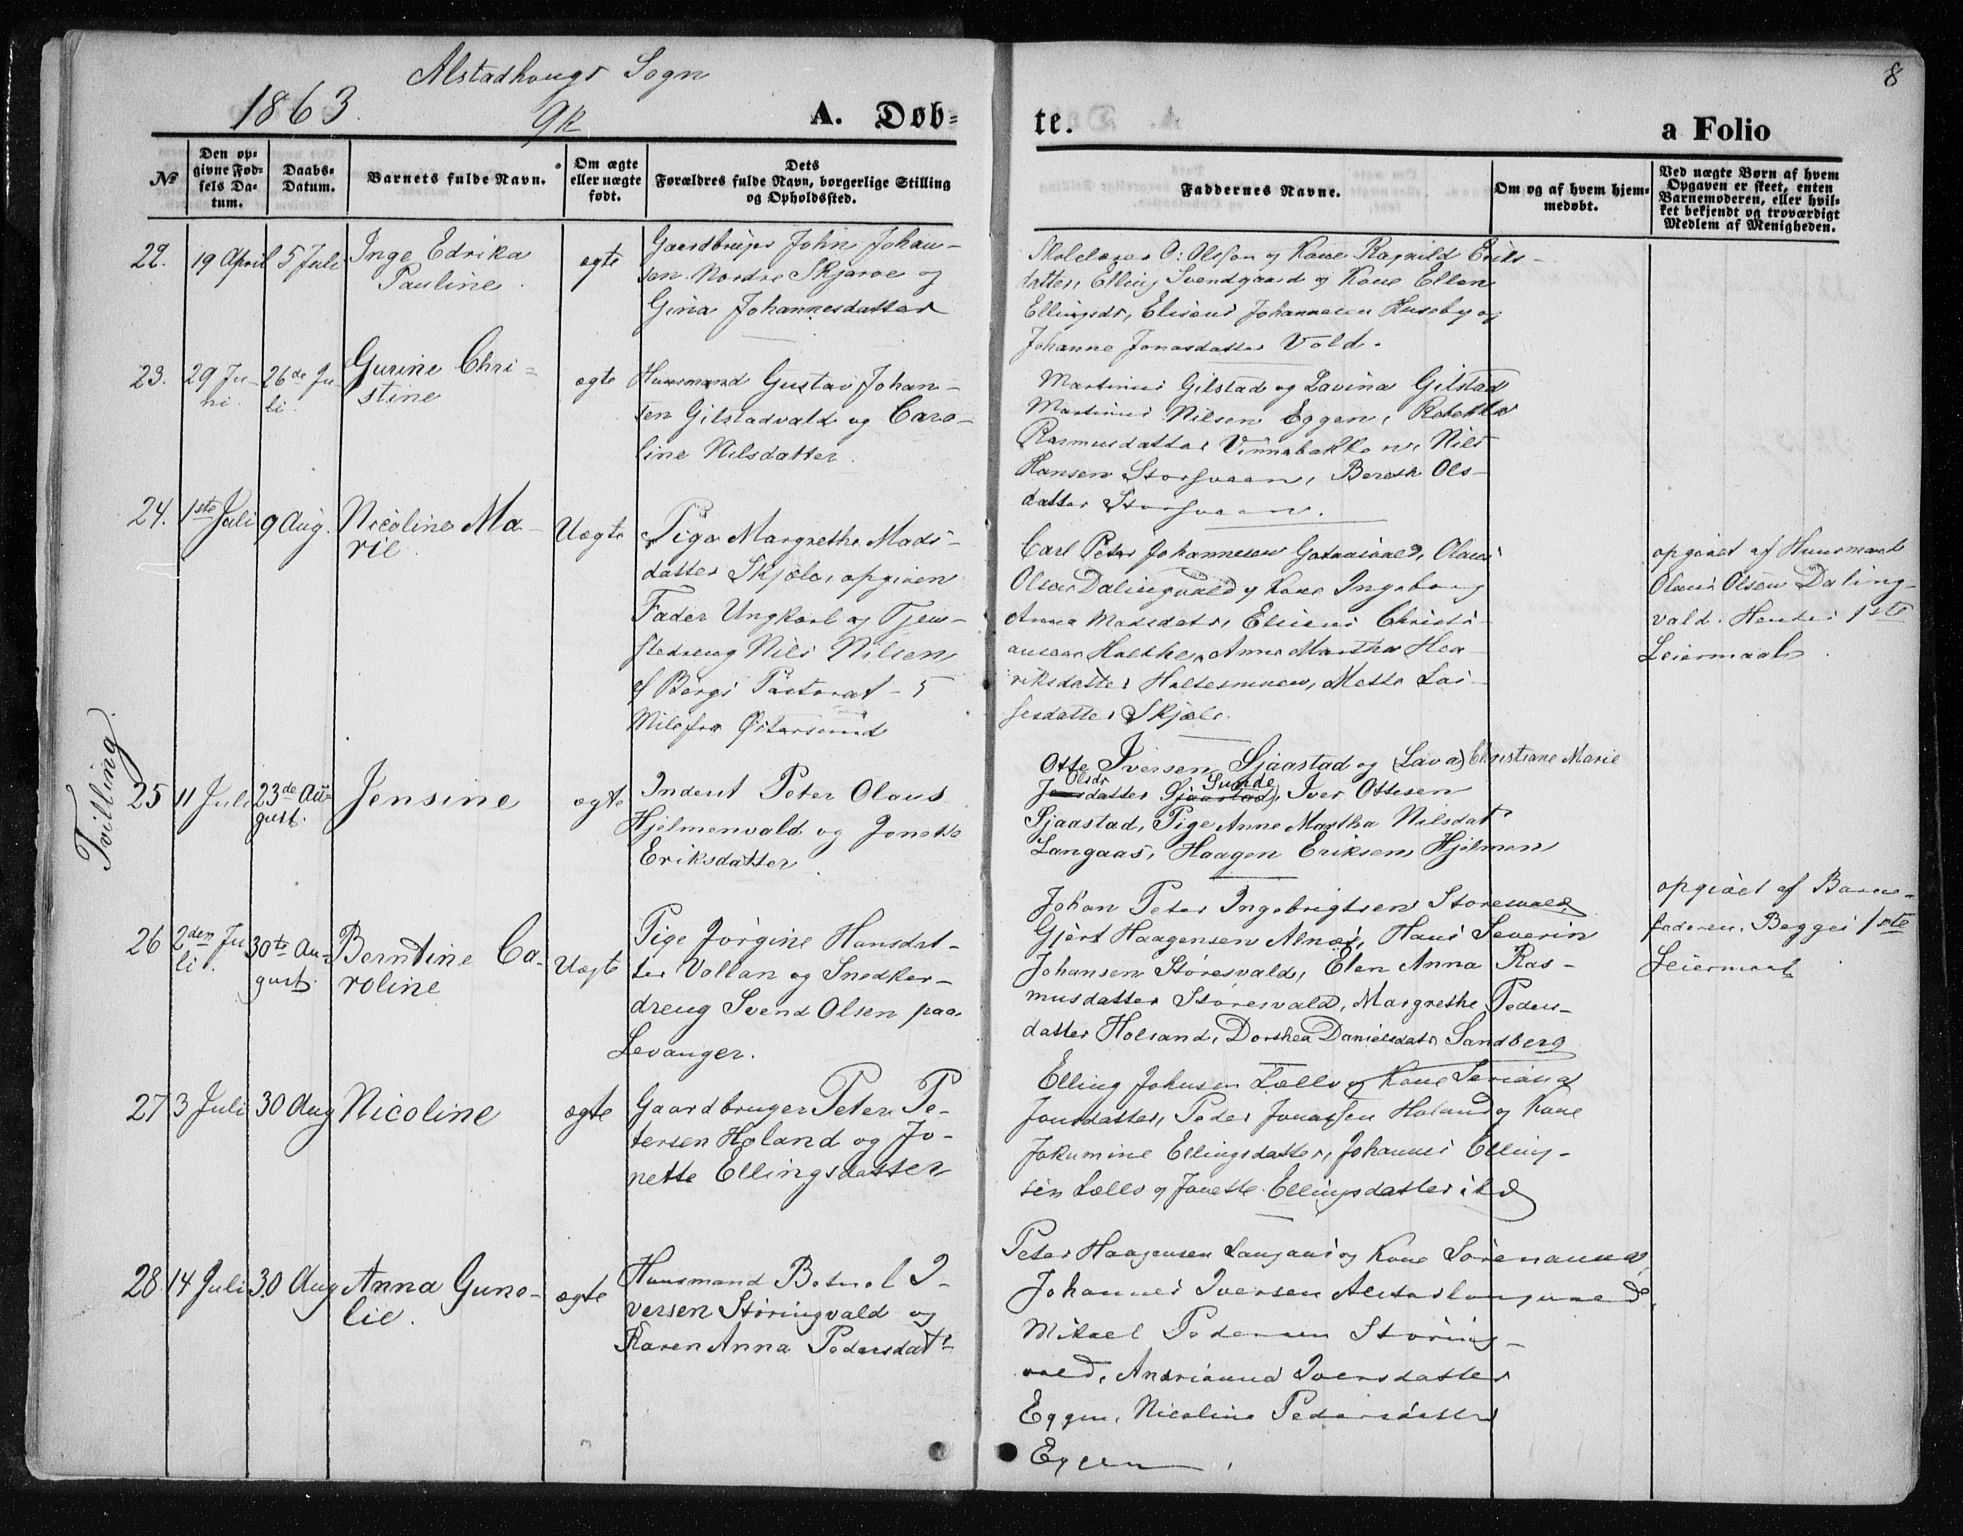 Alstadhougs Sogn
1863.
9k
A. Døb=
te.
a Folio
8
№
Den op=
givne Fød=
sels Da=
tum.
Daabs=
Datum.
Barnets fulde Navn.
Om ægte
eller uægte
født.
Dets
Forældres fulde Navn, borgerlige Stilling
og Opholdssted.
Faddernes Navne.
Om og af hvem hjem=
medøbt.
Ved uægte Børn af hvem
Opgaven er skeet, enten
Barnemoderen, eller hvil=
ket bekjendt og troværdigt
Medlem af Menigheden.
22.
19 April
5 Juli
Inge Edrika
Pauline.
ægte
Gaardbruger John Johan-
sen Nordre Skjerve og
Gina Johannesdatter
Skolelærer O: Olsson og Kone Ragnild Eriks-
datter, Elling Svendgaard og Kone Ellen
Ellingsdr, Eliseus Johannesen Huseby og
Johanne Jonasdatter Vold.
23.
29 Ju-
ni.
26de Ju-
li.
Gurine Chri-
stine
ægte
Huusmand Gustav Johan-
sen Gilstadvald og Caro-
line Nilsdatter.
Martinus Gilstad og Lavina Gilstad
Martinus Nilsen Eggen, Rebekka
Rasmusdatter Vinnabakken, Nils
Hansen Storsveen, Bereth Ols-
datter Storsveen.
24.
1ste Juli
9 Aug.
Nicoline Ma-
rie
Uægte
Pige Margrethe Mads-
datter Skjele, opgiven
Fader Ungkarl og Tjen-
stedreng Nils Nilsen
af Bergs Pastorat - 5
Mile fra Østersund
Carl Peter Johannesen, Olaus
Olsen Dalingvald og Kone Ingeborg
Anna Madsdatr, Eliseus Christi-
ansen Holthe, Anne Martha Hen-
riksdatter Holtesmoen, Mette Las-
sesdatter Skjele.
opgivet af Huusmand
Olaus Olsen Daling-
vald. Hendes 1ste
Leiermaal.
Tvilling.
25
11 Juli
23de Au-
gust.
Jensine
ægte
Inderst Peter Olaus
Hjelmenvald og Jonetta
Eriksdatter.
Otte Iversen Sjaastad og (Lava) Christiane Marie
Olsdr Sunde
Jensdatter Sjaastad, Iver Ottesen
Sjaastad, Pige Anne Martha Nilsdatr
Langaas, Haagen Eriksen Hjelmen
26
2den Ju-
li.
30te Au-
gust.
Berntine Ca-
roline
Uægte
Pige Jørgine Hansdat-
ter Vollan og Snedker-
dreng Svend Olsen paa
Levanger.
Johan Peter Ingebrigtsen Støresvald
Gjert Haagensen Alnæs, Hans Severin
Johansen Støresvald, Elen Anna Ras-
musdatter Støresvald, Margrethe Peders-
datter Holsand, Dorthea Danielsdatr Sandberg
opgivet af Barne-
faderen. Begges 1ste
Leiermaal
27
3 Juli
30 Aug
Nicoline
ægte
Gaardbruger Peter Pe-
tersen Holand og Jo-
nette Ellingsdatter
Elling Johnsen Lello og Kone Seriana
Jonsdatter, Peder Jonassen Holand og Kone
Jokumine Ellingsdatter, Johannes Elling-
sen Lello og Jonette Ellingsdatter ibd
28
14 Juli
30 Aug
Anna Guno-
lie.
ægte
Huusmand Betuel I-
versen Støringvald og
Karen Anna Pedersdatr
Peter Haagensen Langaas og Kone Sørenanna,
Johannes Iversen Alstadhougvald,
Mikael Pedersen Støring-
vald, Andrianna Iversdatter
Eggen, Nicoline Pedersdatter
Eggen.